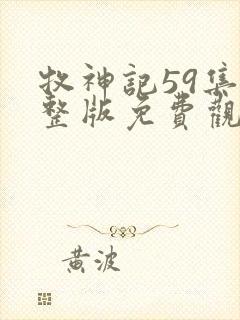 牧神記59集
整版免費觀
黃波